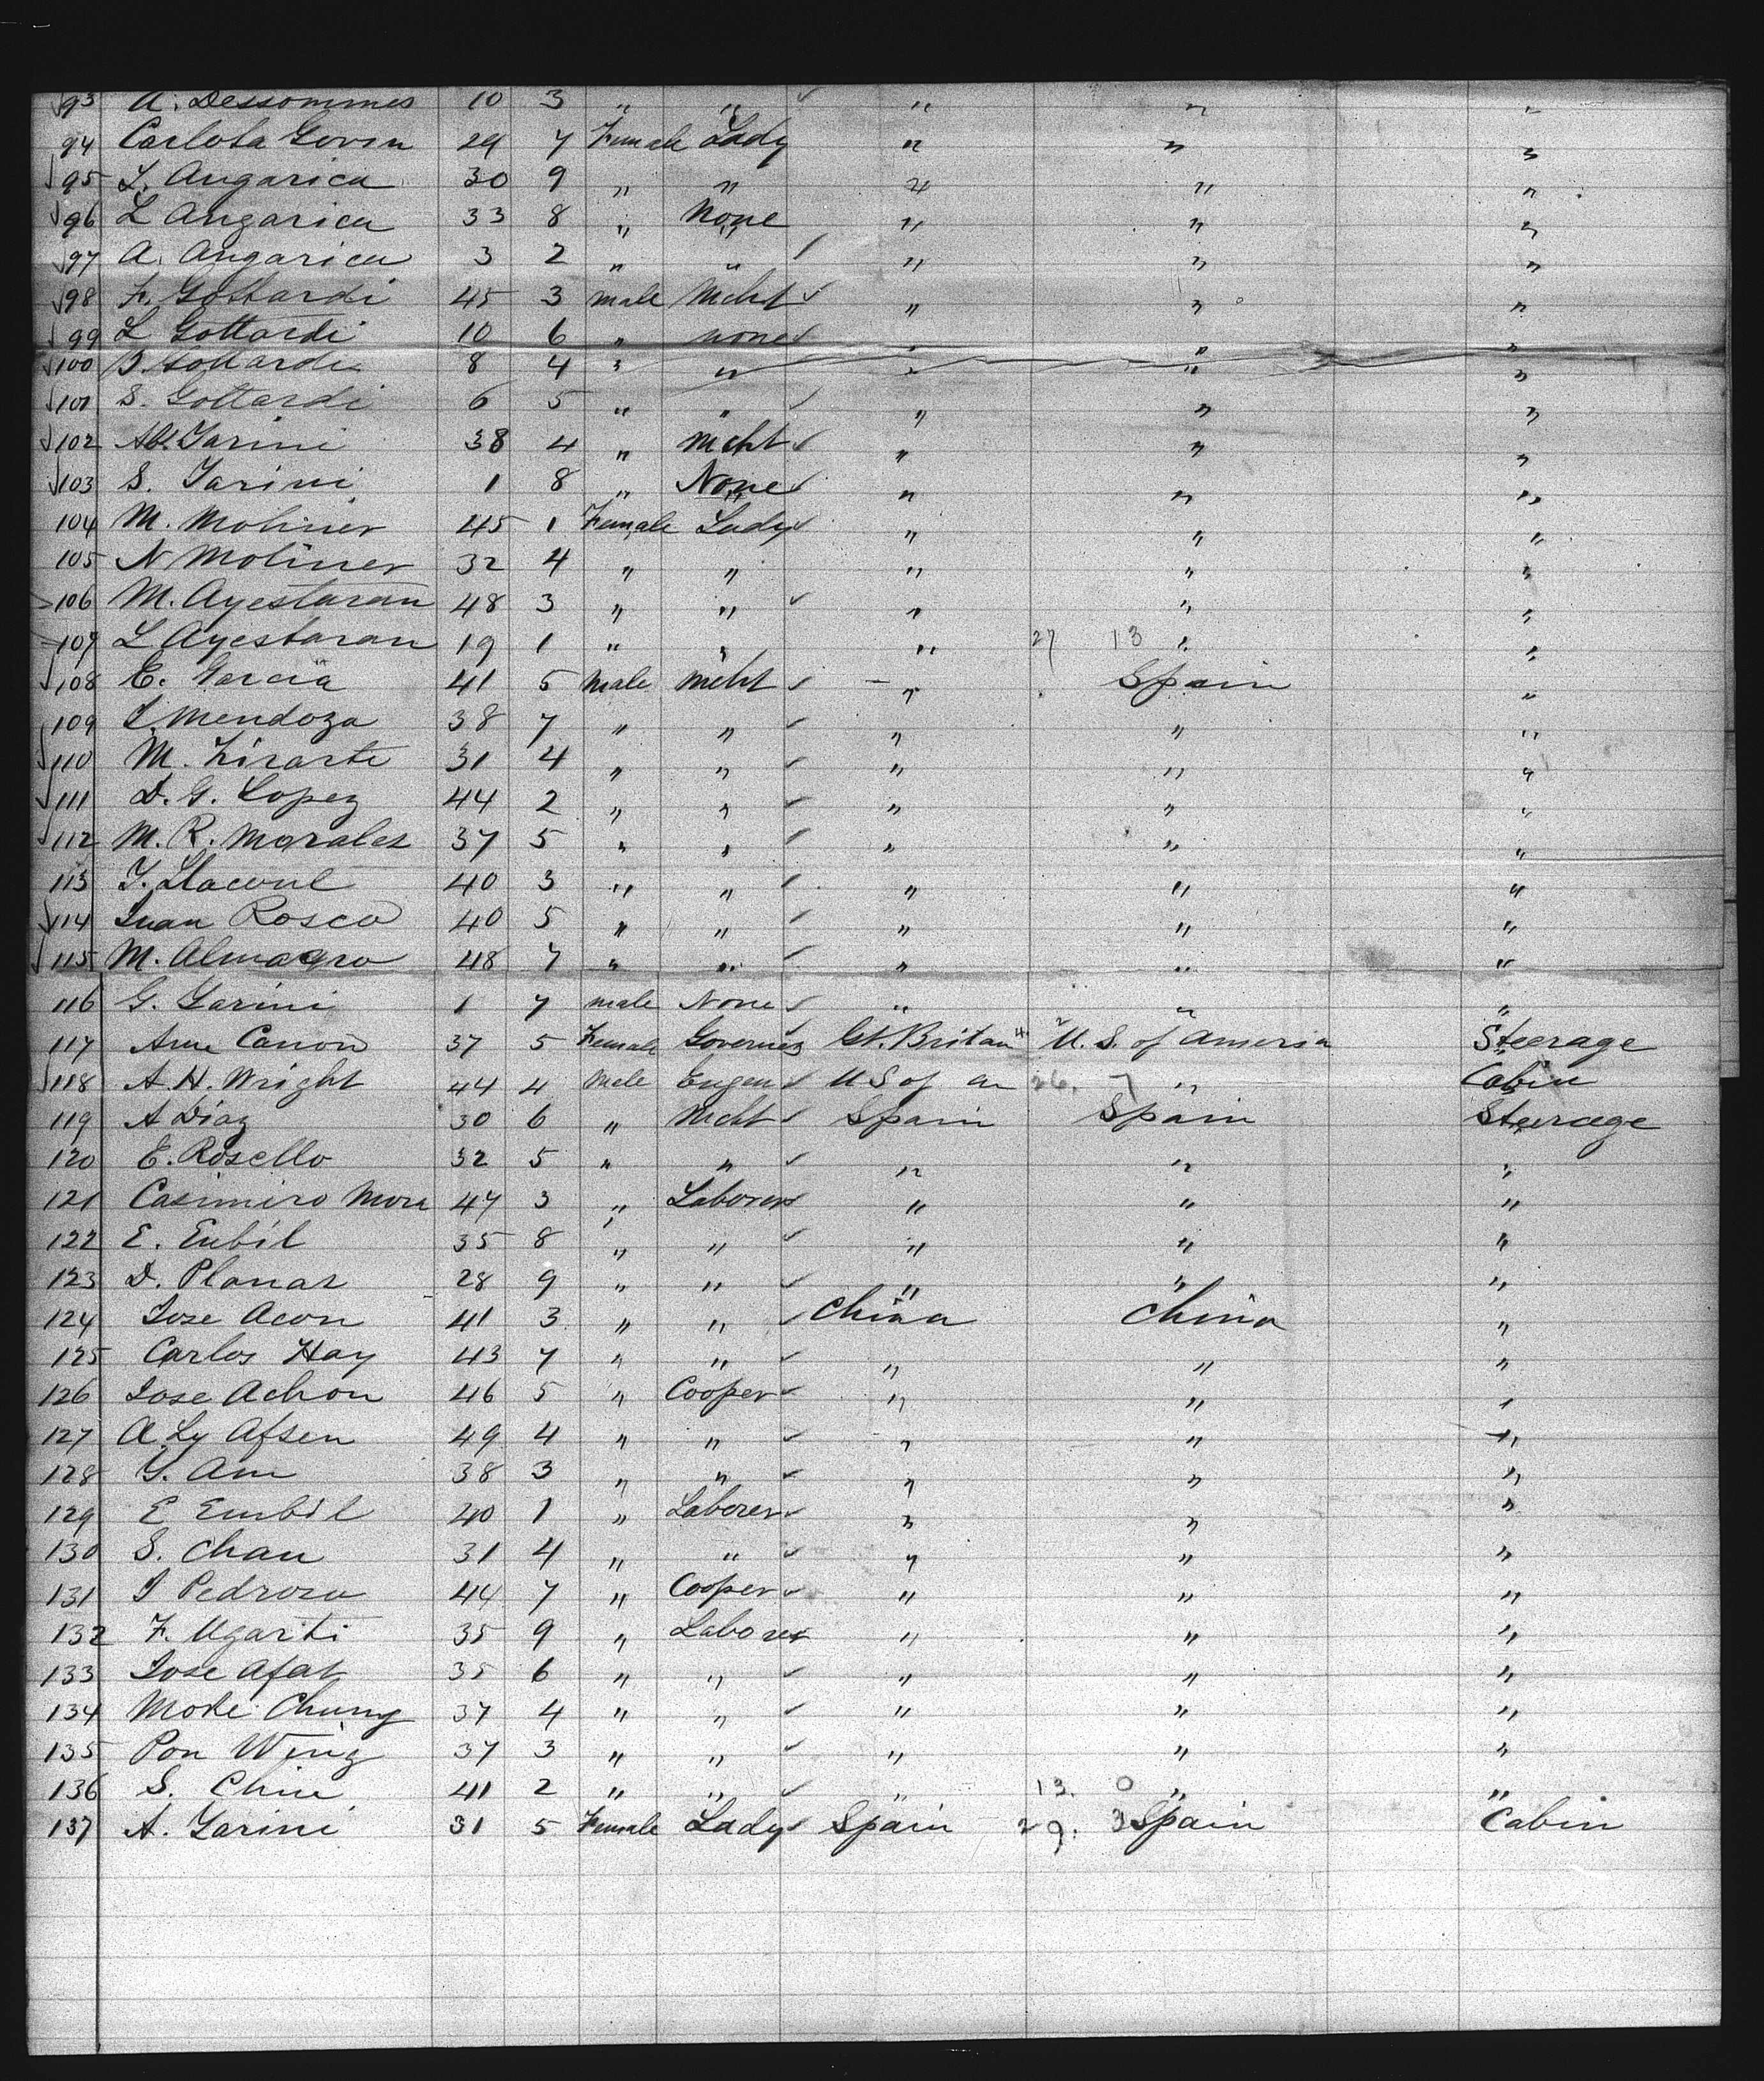 93 A. Dessommes 10 3 " " " " "
94 Carlota Govin 29 7 Female Lady " " "
95 L. Angarica 30 9 " " " " "
96 L Angarica 33 8 " None " " "
97 A. Angarica 3 2 " " " " "
98 F. Gottardi 45 3 male Mcht " " "
99 L Gottardi 10 6 " none " " "
100 Gottardi 8 4 " " " " "
101 S. Gottardi 6 5 " " " " "
102 Yarini 38 4 " Mcht " " "
103 S. Yarini 1 8 " None " " "
104 M. Moliner 45 1 Female Lady " " "
105 N Moliner 32 4 " " " " "
106 M. Ayestaran 48 3 " " " " "
107 L Ayestaran 19 1 " " " 27 13 " "
108 E. Garcia 41 5 Male Mcht " Spain "
109 I. Mendoza 38 7 " " " " "
110 M. Lirarte 31 4 " " " " "
111 D. G. Lopez 44 2 " " " " "
112 M. R. Morales 37 5 " " " " "
113 40 3 " " " " "
114 Juan Rosco 40 5 " " " " "
115 M. Almagro 48 7 " " " " "
116 G. Yarini 1 7 male None " " "
117 Ame Canon 37 5 Female Governes Gt. Britan " U. S. of America Steerage
118 A. H. Wright 44 4 Male Engen U S of am 26. 7 " Cabin
119 A Diaz 30 6 " Mcht Spain Spain Steerage
120 E. Rosello 32 5 " " " " "
121 Casimiro Mora 47 3 " Laborer " " "
122 E. Enbil 35 8 " " " " "
123 D. Planas 28 9 " " " " "
124 Jose Acon 41 3 " " China China "
125 Carlos Hay 43 7 " " " " "
126 Jose Achon 46 5 " Cooper " " "
127 A Ly Afsen 49 4 " " " " "
128 Y. Am 38 3 " " " " "
129 E Embil 40 1 " Laborer " " "
130 S. Chan 31 4 " " " " "
131 I Pedroso 44 7 " Cooper " " "
132 F. Ugarti 35 9 " Laborer " " "
133 Jose Afat 35 6 " " " " "
134 Moke Chung 37 4 " " " " "
135 Pon Wing 37 3 " " " " "
136 S. Chin 41 2 " " " 13. 0 " "
137 A. Yarini 31 5 Female Lady Spain 29. 3 Spain Cabin